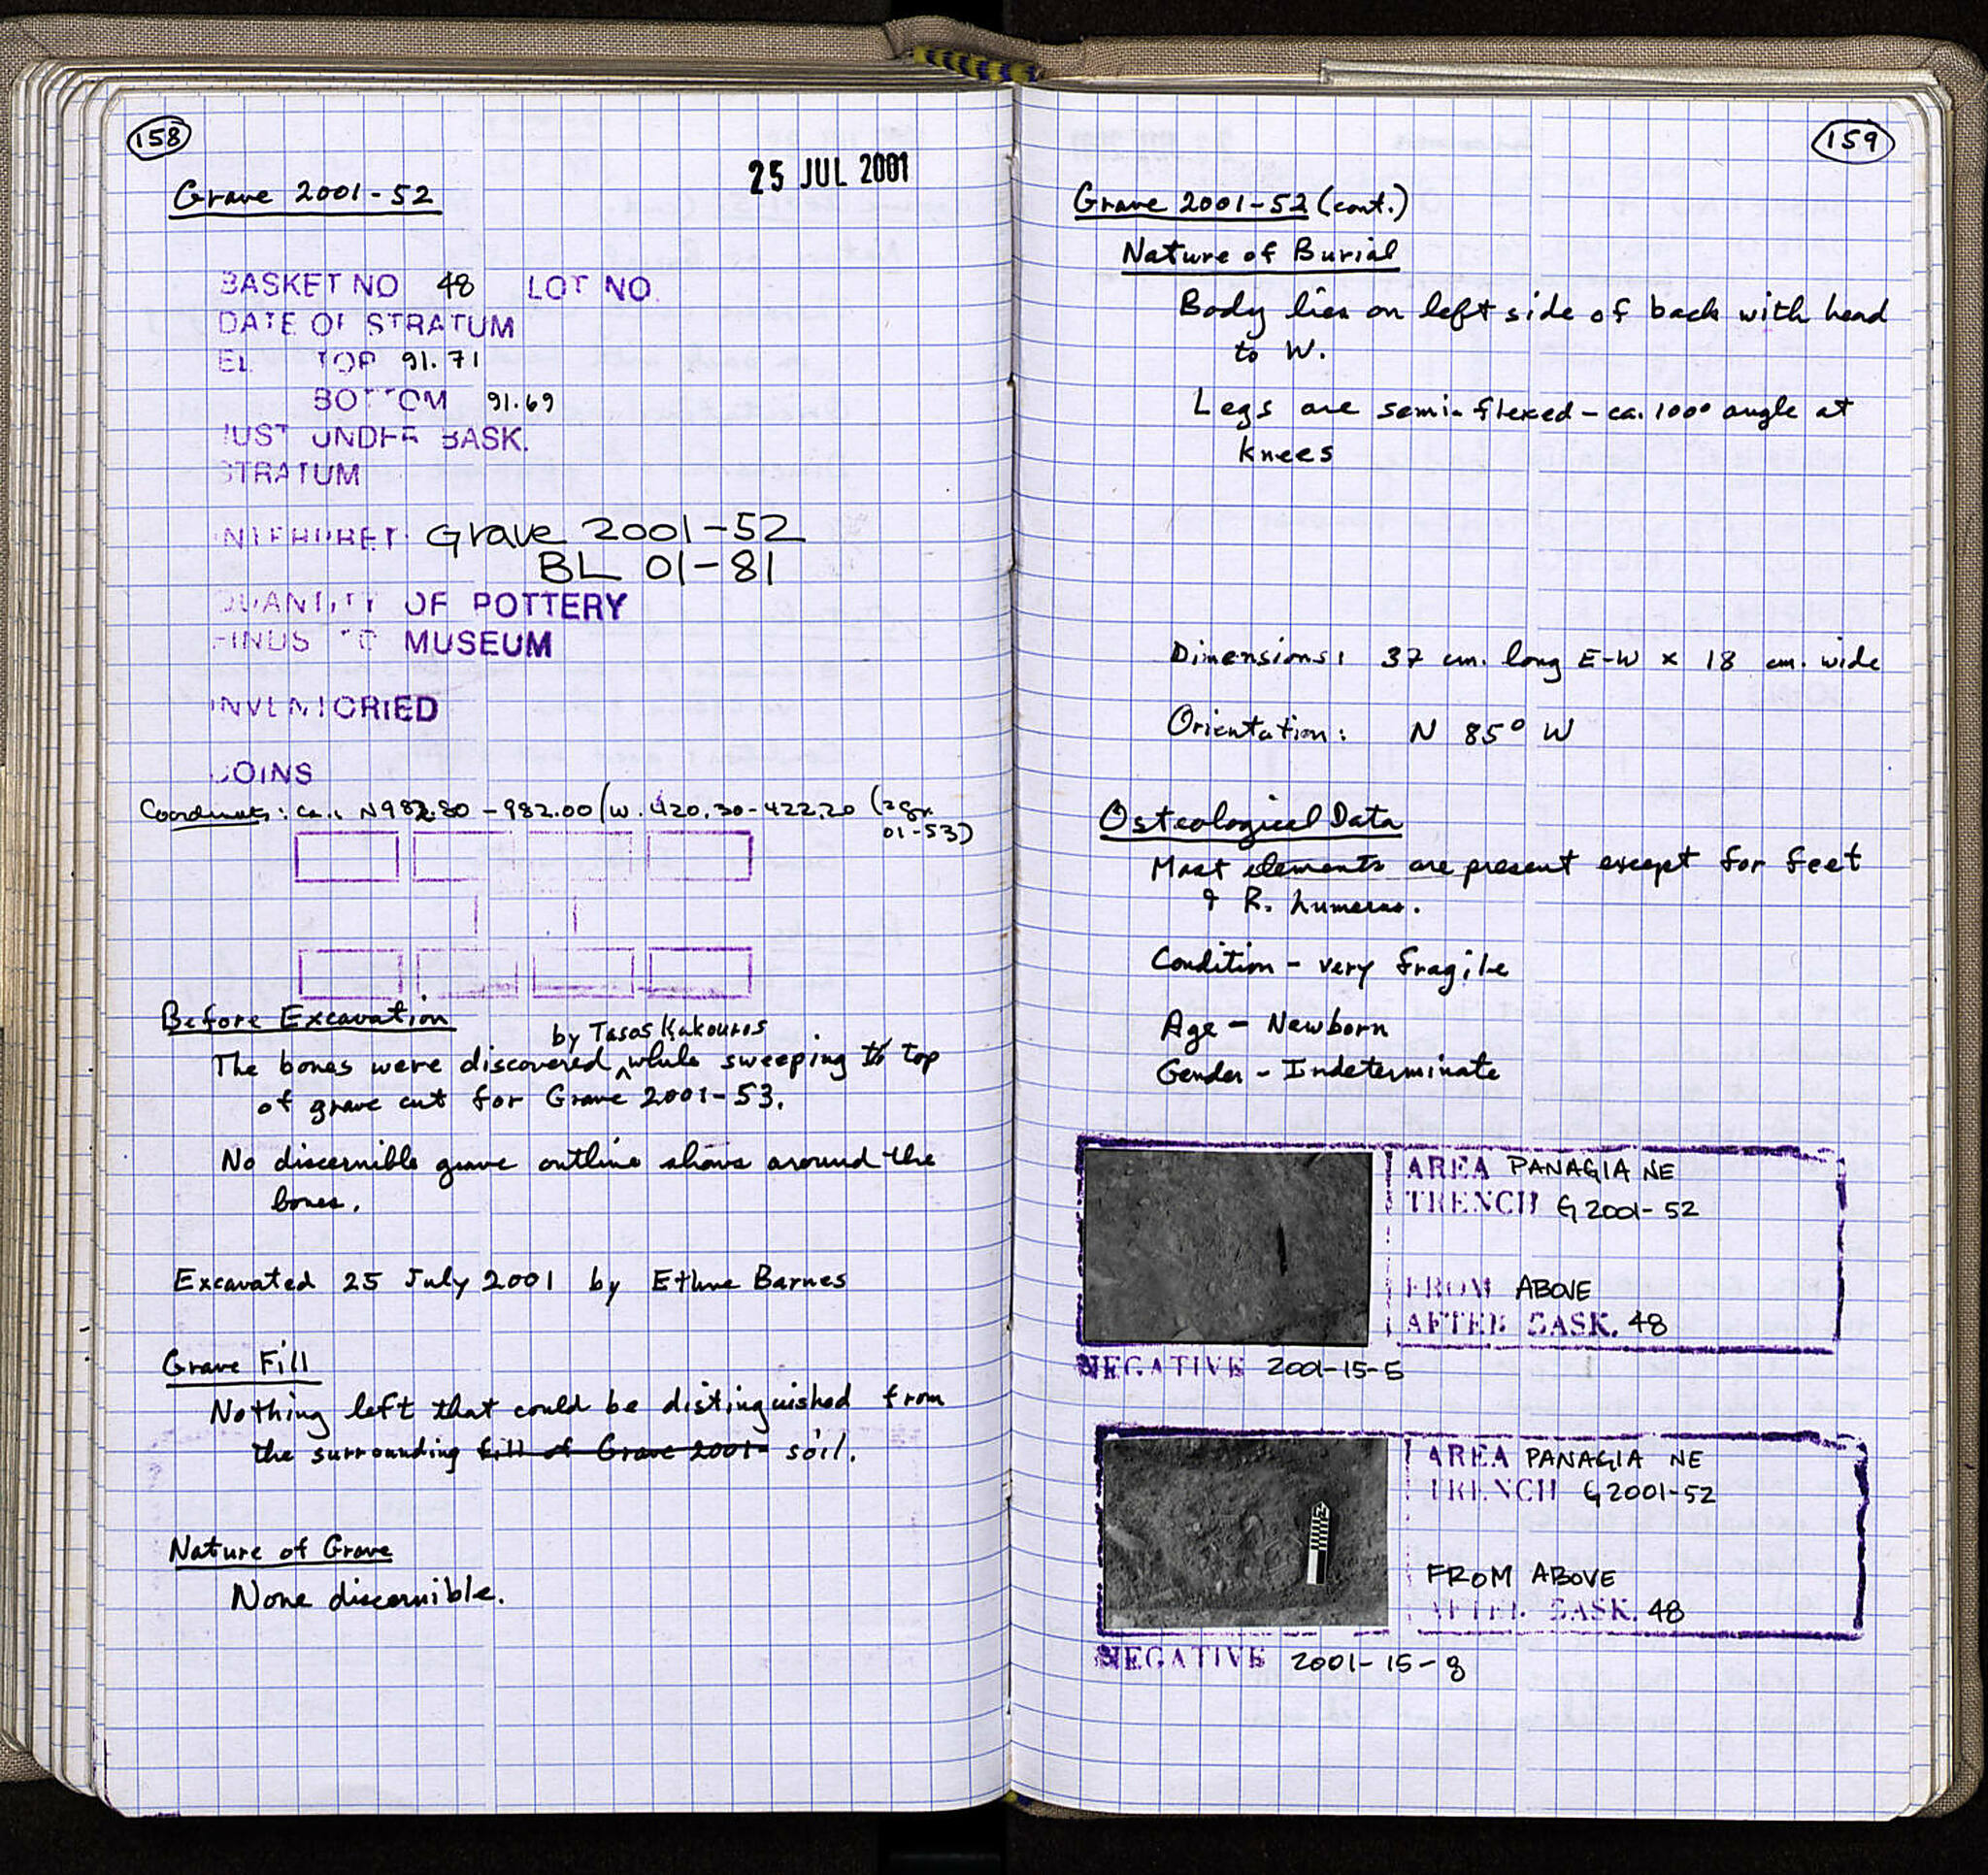 158
25 JUL 2001
Grave 2001-52
BASKET NO 48 LOT NO.
DATE OF STRATUM
EL TOP 91.71
BOTTOM 91.69
JUST UNDER BASK.
STRATUM
INTERPRET. Grave 2001-52
BL 01-81
QUANTITY OF POTTERY
FINDS TO MUSEUM
INVENTORIED
COINS
Coordinates: ca. N982.80 - 982.00 / W. 420.30-422.20 (= gr.
01-53)
Before Excavation
by Tasos Kakouros
The bones were discovered ^ while sweeping top
of grave cut for Grave 2001-53.
No discernible grave outline shows around the
bones.
Excavated 25 July 2001 by Ethne Barnes
Grave Fill
Nothing left that could be distinguished from
the surrounding fill of Grave 2001- soil.
Nature of Grave
None discernible.
159
Grave 2001-52 (cont.)
Nature of Burial
Body lies on left side of back with head
to W.
Legs are semi-flexed - ca. 100° angle at
knees
Dimensions: 37 cm. long E-W x 18 cm. wide
Orientation: N 85° W
Osteological Data
Most elements are present except for feet
& R. humerus.
Condition - very fragile
Age - Newborn
Gender - Indeterminate
AREA PANAGIA NE
TRENCH G2001-52
FROM ABOVE
AFTER BASK. 48
NEGATIVE 2001-15-5
AREA PANAGIA NE
TRENCH G2001-52
FROM ABOVE
AFTER BASK. 48
NEGATIVE 2001-15-8